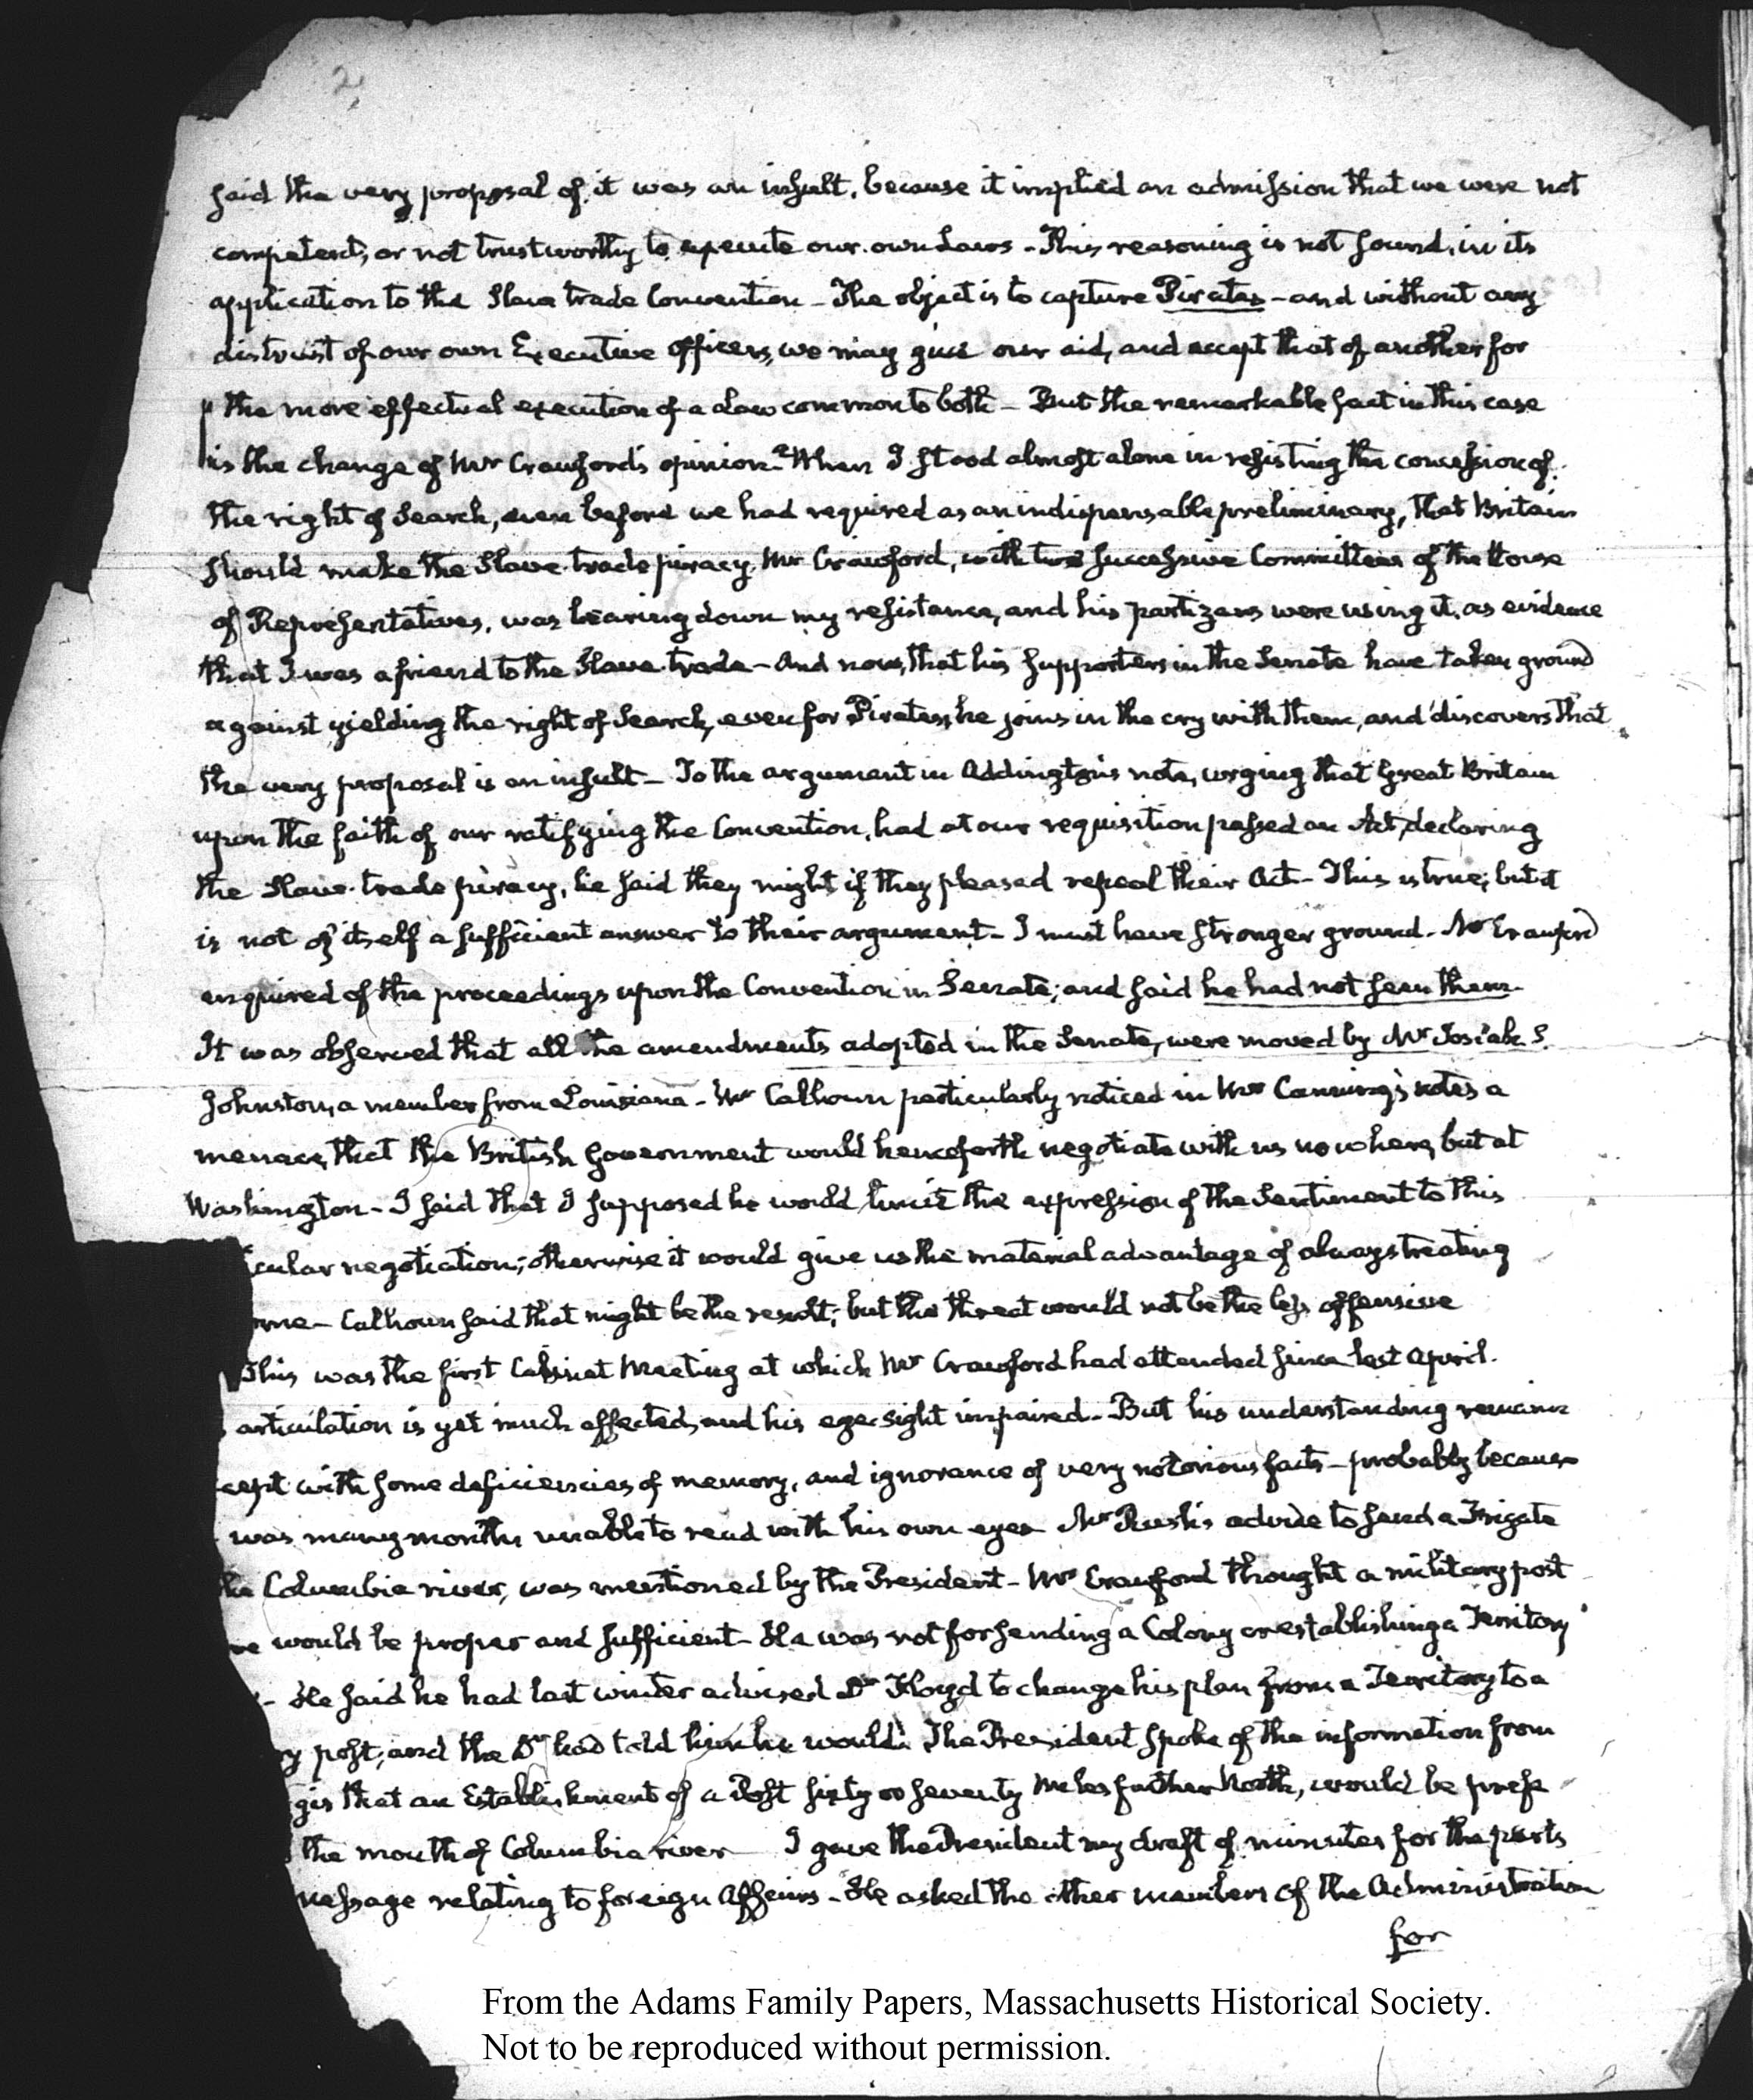 2
said the very proposal of it was an insult, because it implied an admission that we were not
competent, or not trustworthy to execute our own Laws - This reasoning is not sound, in its
application to the Slave trade Convention - The object is to capture Pirates - and without any
distrust of our own Executive Officers, we may give our aid, and accept that of another for
the more effectual execution of a Law common to both - But the remarkable fact in this case
is the change of Mr Crawford's opinion - When I stood almost alone in resisting the concession of
the right of Search, even before we had required as an indispensable preliminary, that Britain
should make the Slave-trade piracy, Mr Crawford, with two successive Committees of the House
of Representatives, was bearing down my resistance, and his partizans were using it, as evidence
that I was a friend to the Slave-trade - And now, that his supporters in the Senate have taken ground
against yielding the right of Search, even for Pirates, he joins in the cry with them, and discovers that
the very proposal is an insult - To the argument in Addington's note, urging that Great Britain
upon the faith of our ratifying the Convention, had at our requisition passed an Act, declaring
the Slave-trade piracy, he said they might if they pleased repeal their Act - This is true; but it
is not of itself a sufficient answer to their argument - I must have stronger ground - Mr Crawford
enquired of the proceedings upon the Convention in Senate; and said he had not seen them.
It was observed that all the amendments adopted in the Senate, were moved by Mr Josiah S.
Johnston, a member from Louisiana - Mr Calhoun particularly noticed in Mr Canning's notes a
menace, that the British Government would henceforth negotiate with us no where, but at
Washington - I said that I supposed he would limit the expression of the Sentiment to this
icular negotiation; otherwise it would give us the material advantage of always treating
ome - Calhoun said that might be the result; but the threat would not be the less offensive
This was the first Cabinet Meeting at which Mr Crawford had attended since last April.
articulation is yet much affected, and his eye-sight impaired - But his understanding remains
cept with some deficiencies of memory, and ignorance of very notorious facts - probably because
was many months unable to read with his own eyes Mr Rush's advice to send a Frigate
he Columbia river, was mentioned by the President - Mr Crawford thought a military post
re would be proper and sufficient - He was not for sending a Colony or establishing a Territory
- He said he had last winter advised Dr Floyd to change his plan from a Territory to a
ry post; and the Dr had told him he would. The President spoke of the information from
gis that an Establishment of a Post sixty or seventy Miles further North, would be prefe
the mouth of Columbia river I gave the President my draft of minutes for the parts
message relating to foreign Affairs - He asked the other members of the Administration
for
From the Adams Family Papers, Massachusetts Historical Society.
Not to be reproduced without permission.